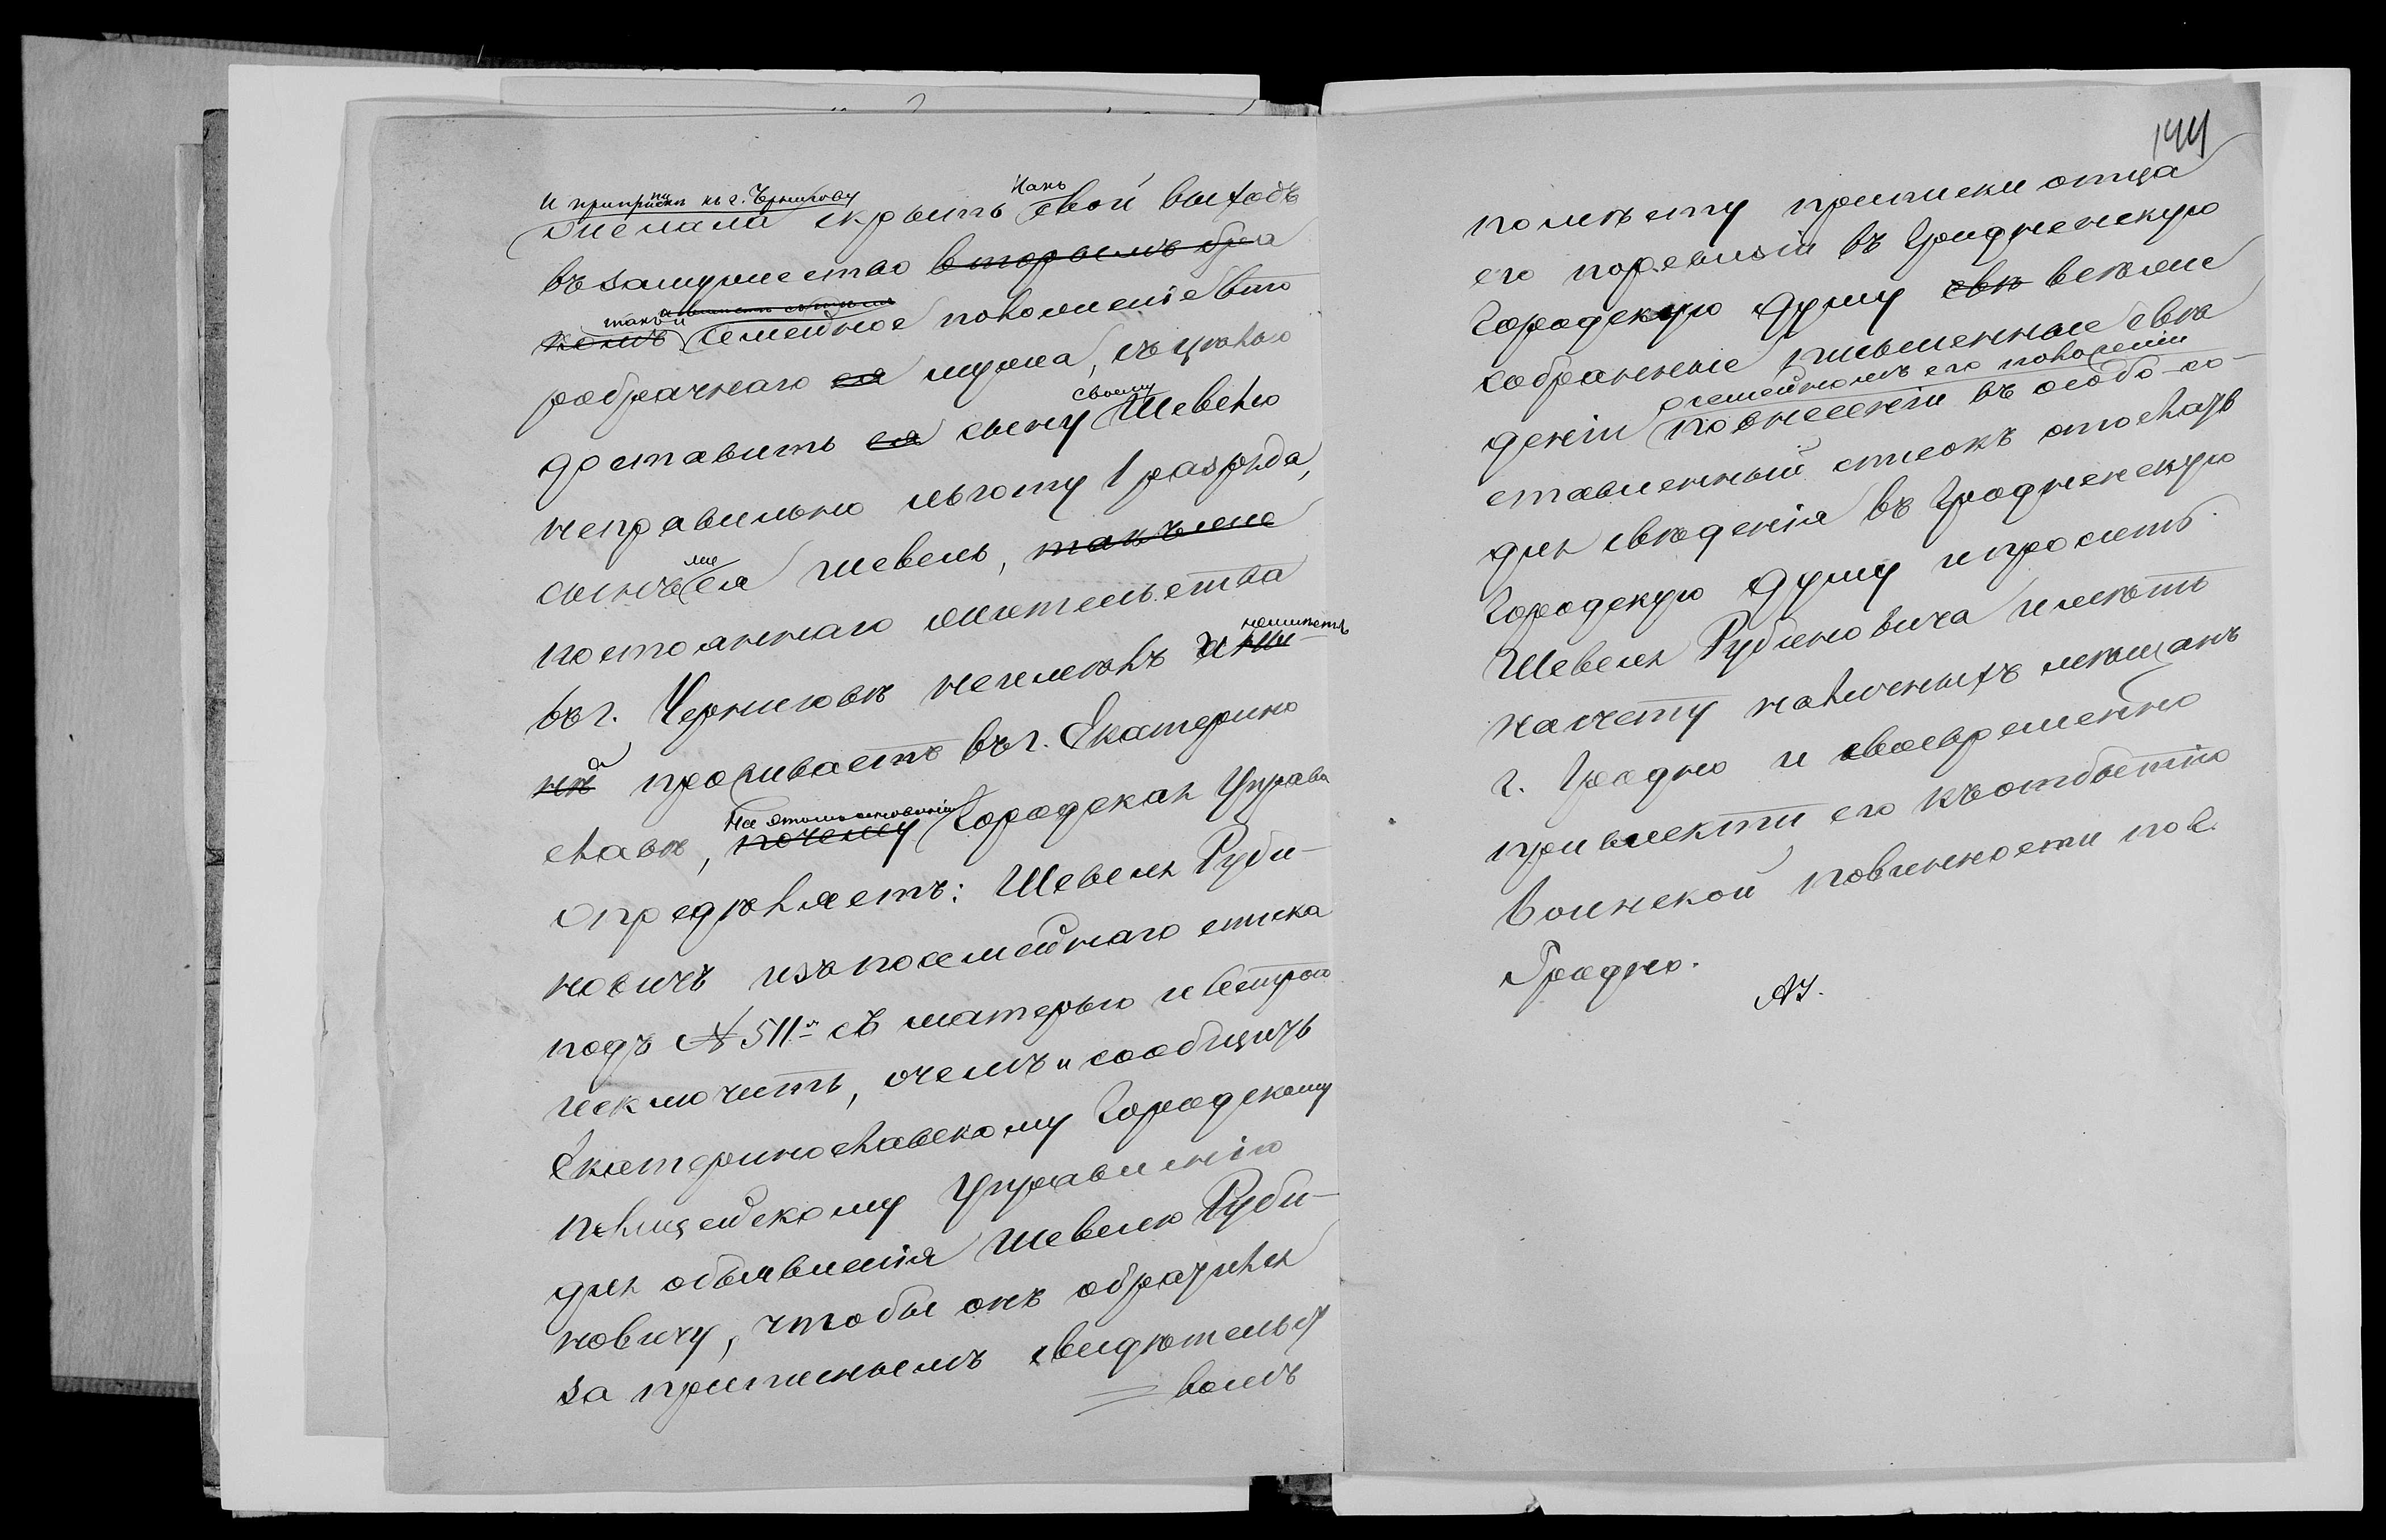 и при приписке къ г. Чернигову какъ
она могла скрыть свой выходъ
въ замужество вторымъ бра
комъ такъ и семейное положеніе вто
робрачнаго ея мужа, съ цѣлью
доставить ея сыну своему Шевелю
неправильно льготу 1 разряда,
сынъ же ея Шевель, такъ же
постояннаго жительства
въ г. Черниговѣ не имѣлъ и не имѣетъ
нѣ а проживаетъ въ г. Екатерино
славѣ, почему На этомъ основаніи Городская Управа
опредѣляетъ: Шевеля Руби-
новичъ изъ посемейнаго списка
подъ № 511 съ матерью и сестрою
исключить, о чемъ и сообщить
Екатеринославскому Городскому
полицейскому Управленію
для объявленія Шевелю Руби-
новичу, чтобы онъ обратился
за приписнымъ свидѣтельст
вомъ
144
по мѣсту приписки отца
его по ревизіи въ Гродненскую
Городскую Думу свѣ всѣ же
собранные письменные свѣ
денія о семейномъ его положеніи
по внесеніи въ особо со-
ставленный списокъ отослать
для свѣденія въ Гродненскую
Городскую Думу и просить
Шевеля Рубиновича имѣть
на счету наличныхъ мѣщанъ
г. Гродно и своевременно
привлекти его къ отбытію
воинской повинности по г.
Гродно.